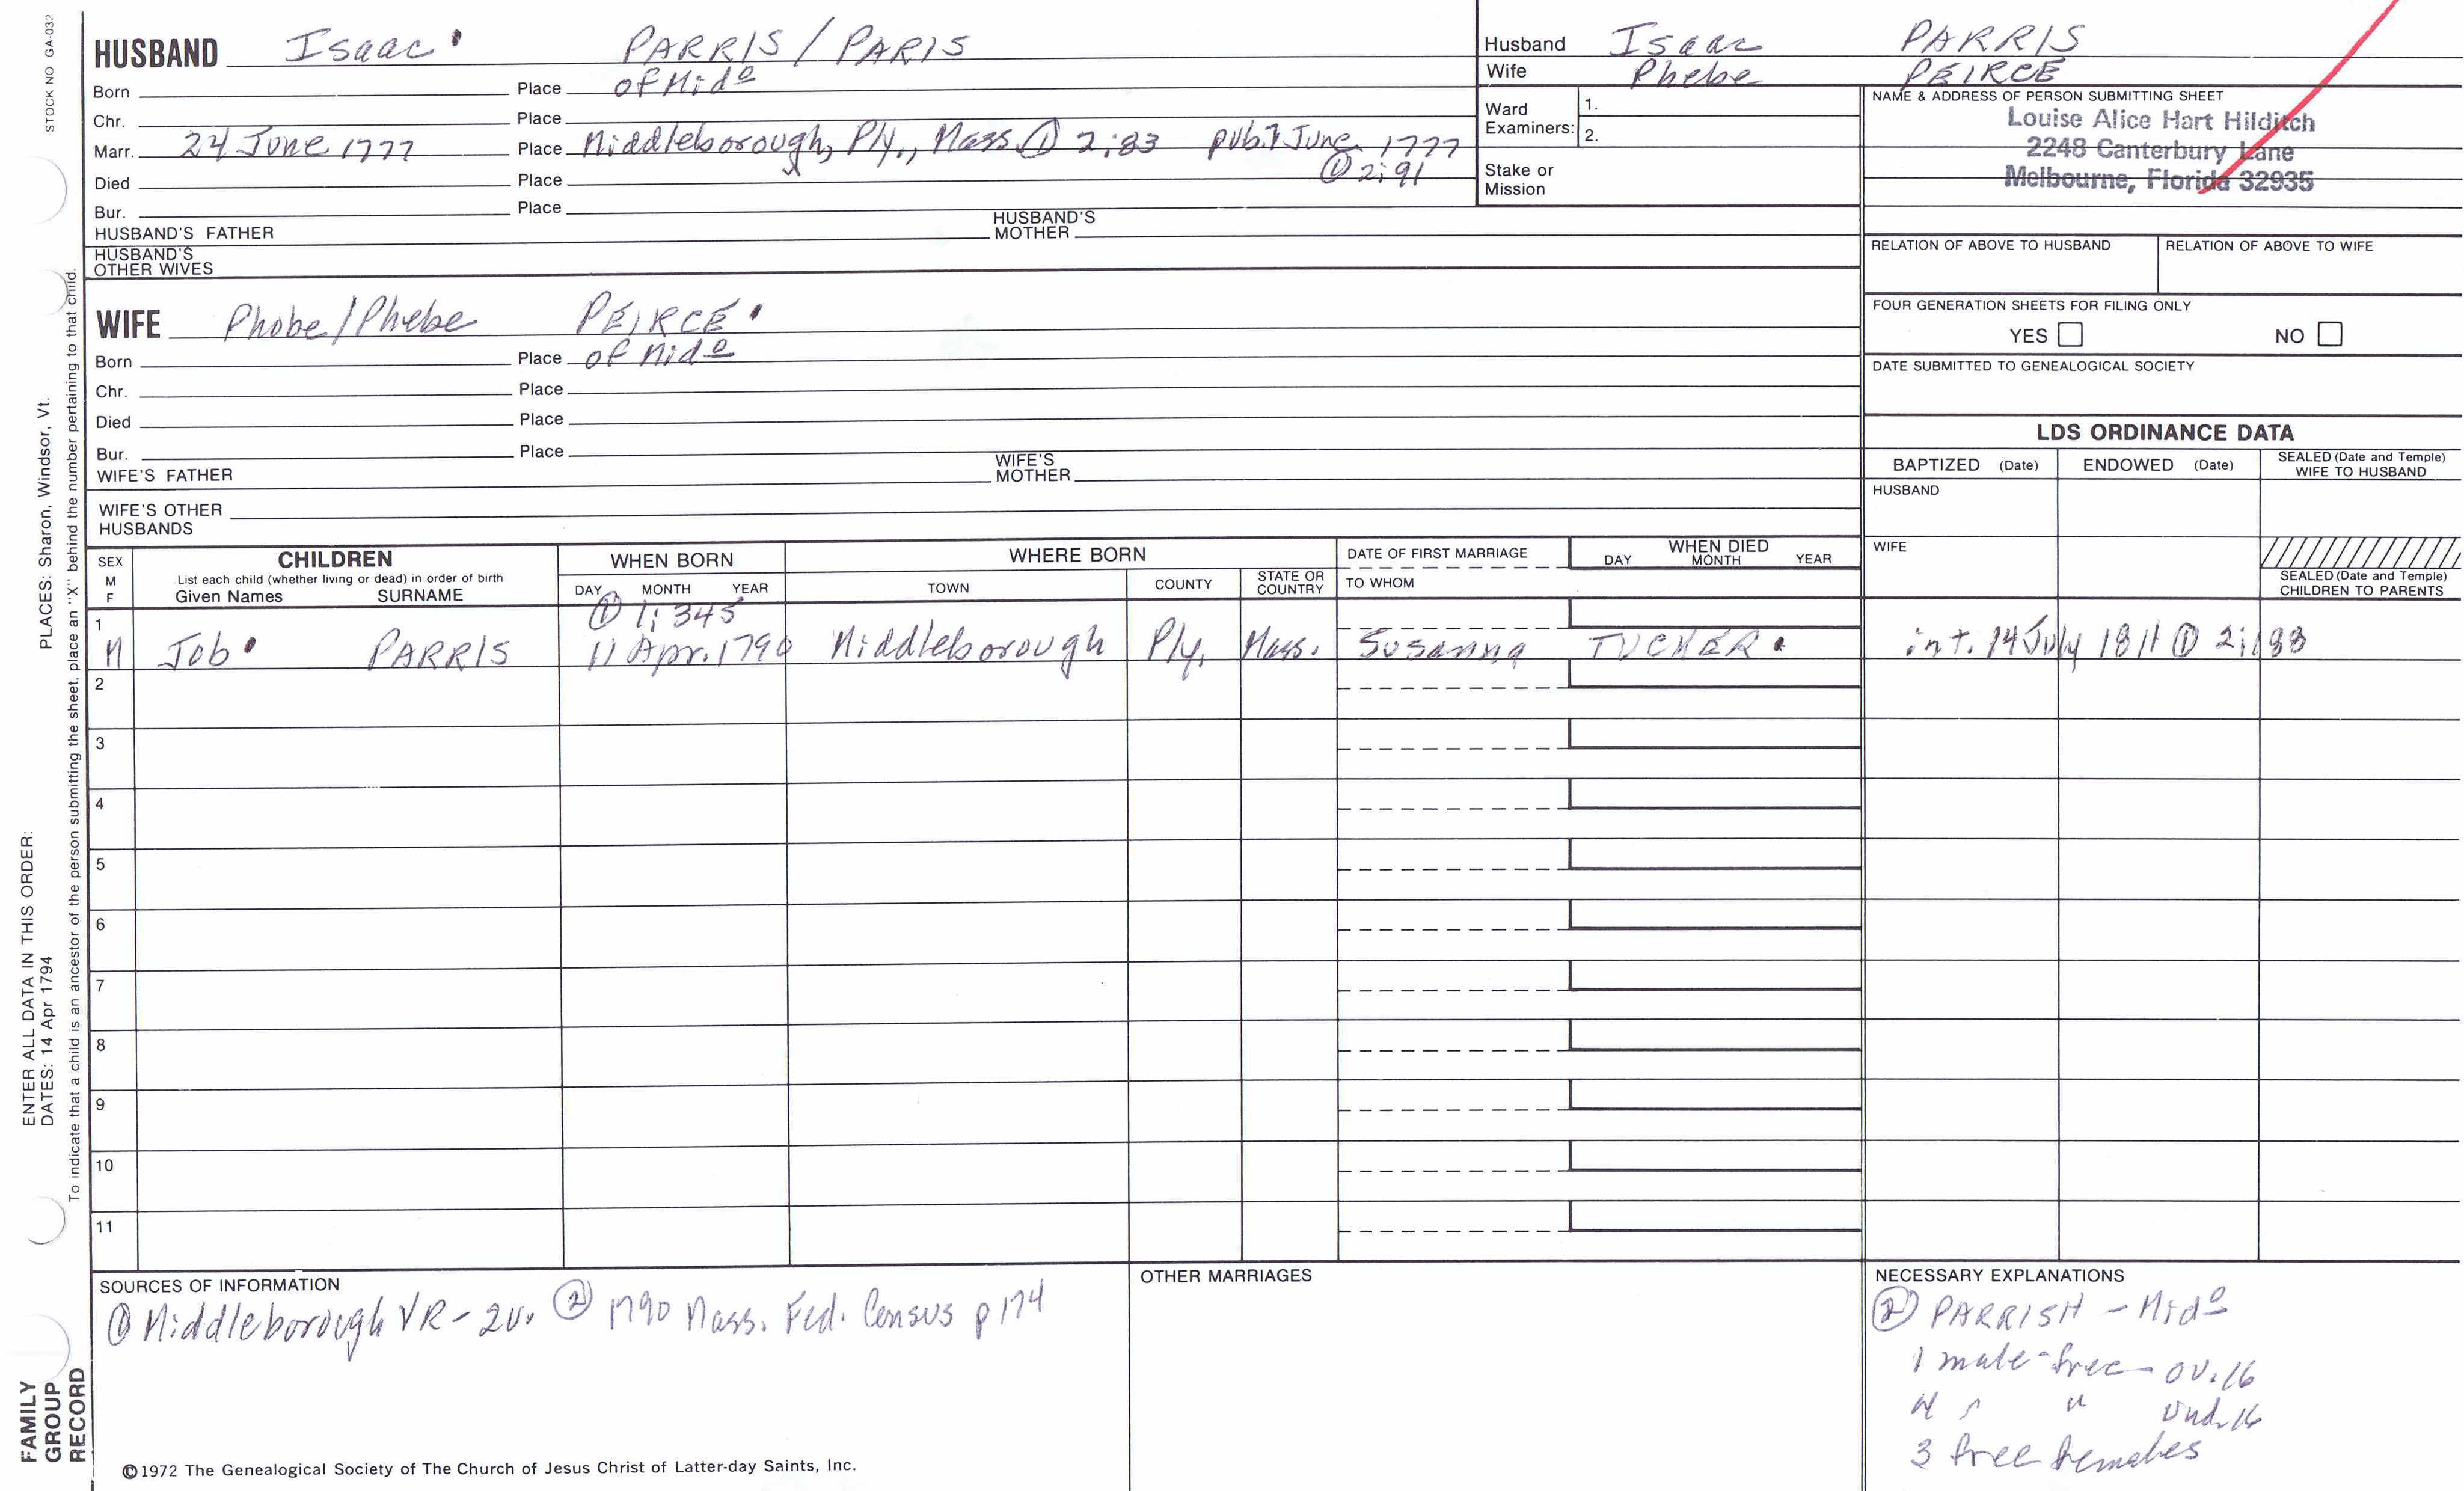 STOCK NO GA-032
HUSBAND Isaac PARRIS / PARIS
Born Place of Mido
Chr. Place
Marr. 24 June 1777 Place Middleborough, Ply., Mass. ① 2:83 pub. 7 June 1777
① 2:91
Died Place
Bur. Place
HUSBAND'S FATHER HUSBAND'S MOTHER
HUSBAND'S OTHER WIVES
Husband Isaac PARRIS
Wife Phebe PEIRCE
Ward Examiners: 1.
2.
Stake or Mission
NAME & ADDRESS OF PERSON SUBMITTING SHEET
Louise Alice Hart Hilditch
2248 Canterbury Lane
Melbourne, Florida 32935
RELATION OF ABOVE TO HUSBAND RELATION OF ABOVE TO WIFE
FOUR GENERATION SHEETS FOR FILING ONLY
YES NO
DATE SUBMITTED TO GENEALOGICAL SOCIETY
WIFE Phobe/Phebe PEIRCE
Born Place of Mido
Chr. Place
Died Place
Bur. Place
WIFE'S FATHER WIFE'S MOTHER
WIFE'S OTHER HUSBANDS
LDS ORDINANCE DATA
BAPTIZED (Date) ENDOWED (Date) SEALED (Date and Temple) WIFE TO HUSBAND
HUSBAND
WIFE
SEALED (Date and Temple) CHILDREN TO PARENTS
SEX M F
CHILDREN
List each child (whether living or dead) in order of birth
Given Names SURNAME
WHEN BORN
DAY MONTH YEAR
WHERE BORN
TOWN COUNTY STATE OR COUNTRY
DATE OF FIRST MARRIAGE
TO WHOM
WHEN DIED
DAY MONTH YEAR
① 1:345
1 M Job PARRIS 11 Apr. 1790 Middleborough Ply. Mass. Susanna TUCKER int. 14 July 1811 ① 2:188
2
3
4
5
6
7
8
9
10
11
SOURCES OF INFORMATION
① Middleborough VR - 2v. ② 1790 Mass. Fed. Census p 174
OTHER MARRIAGES
NECESSARY EXPLANATIONS
② PARRISH - Mido
1 male - free - ov. 16
4 " " und. 16
3 free females
©1972 The Genealogical Society of The Church of Jesus Christ of Latter-day Saints, Inc.
FAMILY GROUP RECORD
ENTER ALL DATA IN THIS ORDER:
DATES: 14 Apr 1794
PLACES: Sharon, Windsor, Vt.
To indicate that a child is an ancestor of the person submitting the sheet, place an "X" behind the number pertaining to that child.